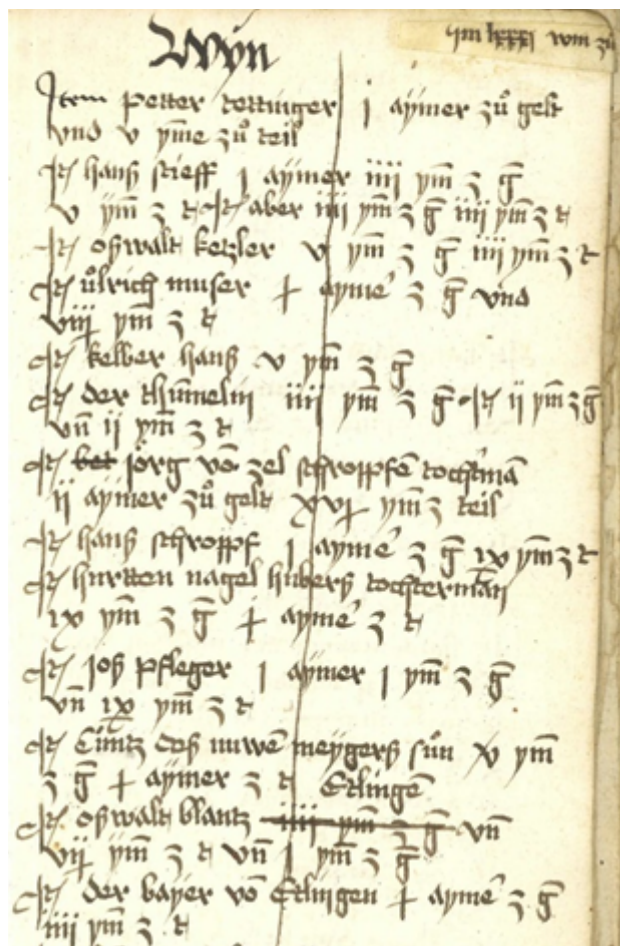 Wyn
Item Petter tettinger j aÿmer zů gelt
vnd v ÿme zů teil
It hanß stieff j aÿmer iiij ym̄ z g̅
v ym̄ z t It aber iiij ym̄ z g̅ iiij ym̄ z t
It oßwalt ketzler v ym̄ z g̅ iiij ym̄ z t
It ůlrich muser ayme z g̅ vnd
viij ym̄ z t
It kelber hanß v ym̄ z g̅
It der iiij ym̄ z g̅ It ij ym̄ z g̅
vn̄ ij ym̄ z t
It jörg vō zel schroppfē tochtmā
ij aÿmer zů gelt ym̄ z teil
It hanß schroppf j ayme z g̅ ix ym̄ z t
It nagel huberß tochterman
ix ym̄ z g̅ ayme z t
It Joß Pfleger j aÿmer j ym̄ z g̅
vn̄ ix ym̄ z t
It Cůntz deß nuwē meÿgerß sůn ym̄
z g̅ aÿmer z t Etlingē
It oßwalt blantz iiij ym̄ z g̅ vn̄
ym̄ z t vn̄ j ym̄ z g̅
It der baÿer vō Etlingen ayme z g̅
iiij ym̄ z t